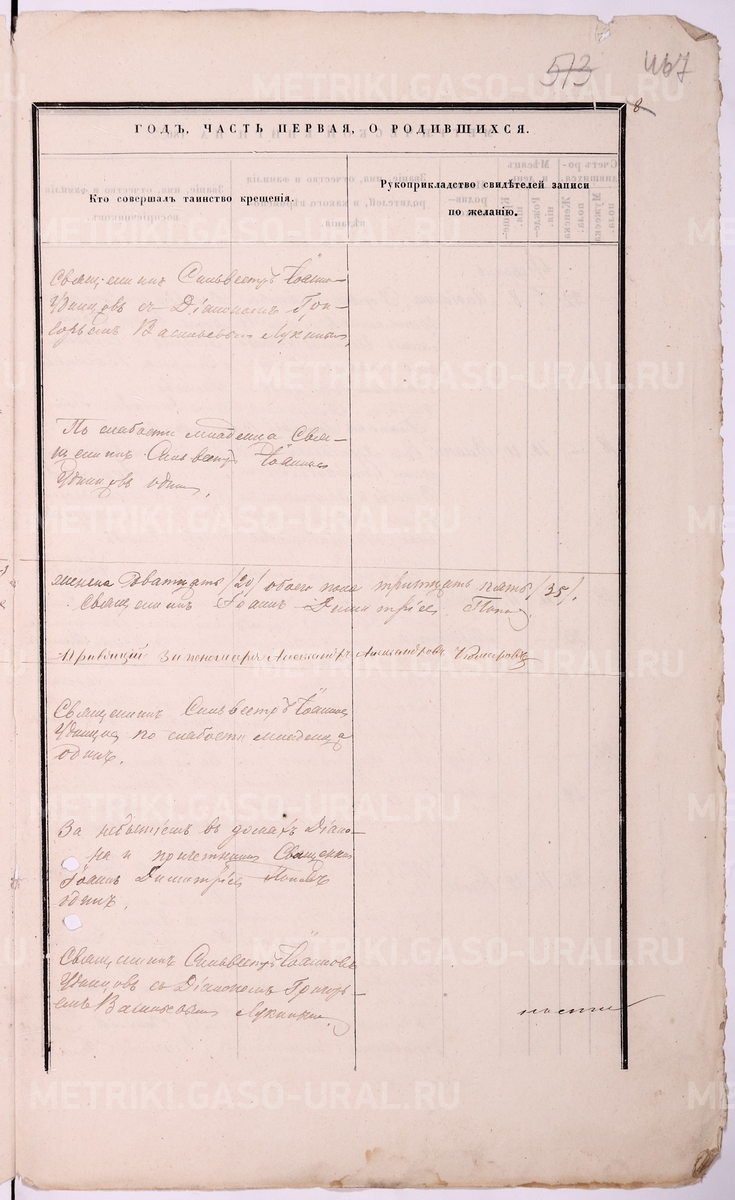 573 467
8
ГОДЪ, ЧАСТЬ ПЕРВАЯ, О РОДИВШИХСЯ.
Кто совершалъ таинство крещенія.
Рукоприкладство свидѣтелей записи
по желанію.
Священникъ Сильвестръ Іоанно-
Удинцовъ съ Діакономъ Гри-
горьемъ Васильевымъ Лукиным
По слабости младенца Свя-
щенникъ Сильвестръ Іоаннов
Удинцовъ одинъ,
женска дватцать /20/ обоего пола тритцать пять /35/.
Священникъ Іоаннъ Димитріев Попов
Правящій за пономаря Александръ Александровъ
Священникъ Сильвестръ Іоаннов
Удинцов по слабости младенца
одинъ,
За небытіемъ въ домахъ Діако-
на и причетников Священник
Іоаннъ Димитріев Поповъ
одинъ,
Священникъ Сильвестръ Іоанновъ
Удинцовъ съ Діакономъ Григорь-
емъ Васильевым Лукиным
METRIKI.GASO-URAL.RU